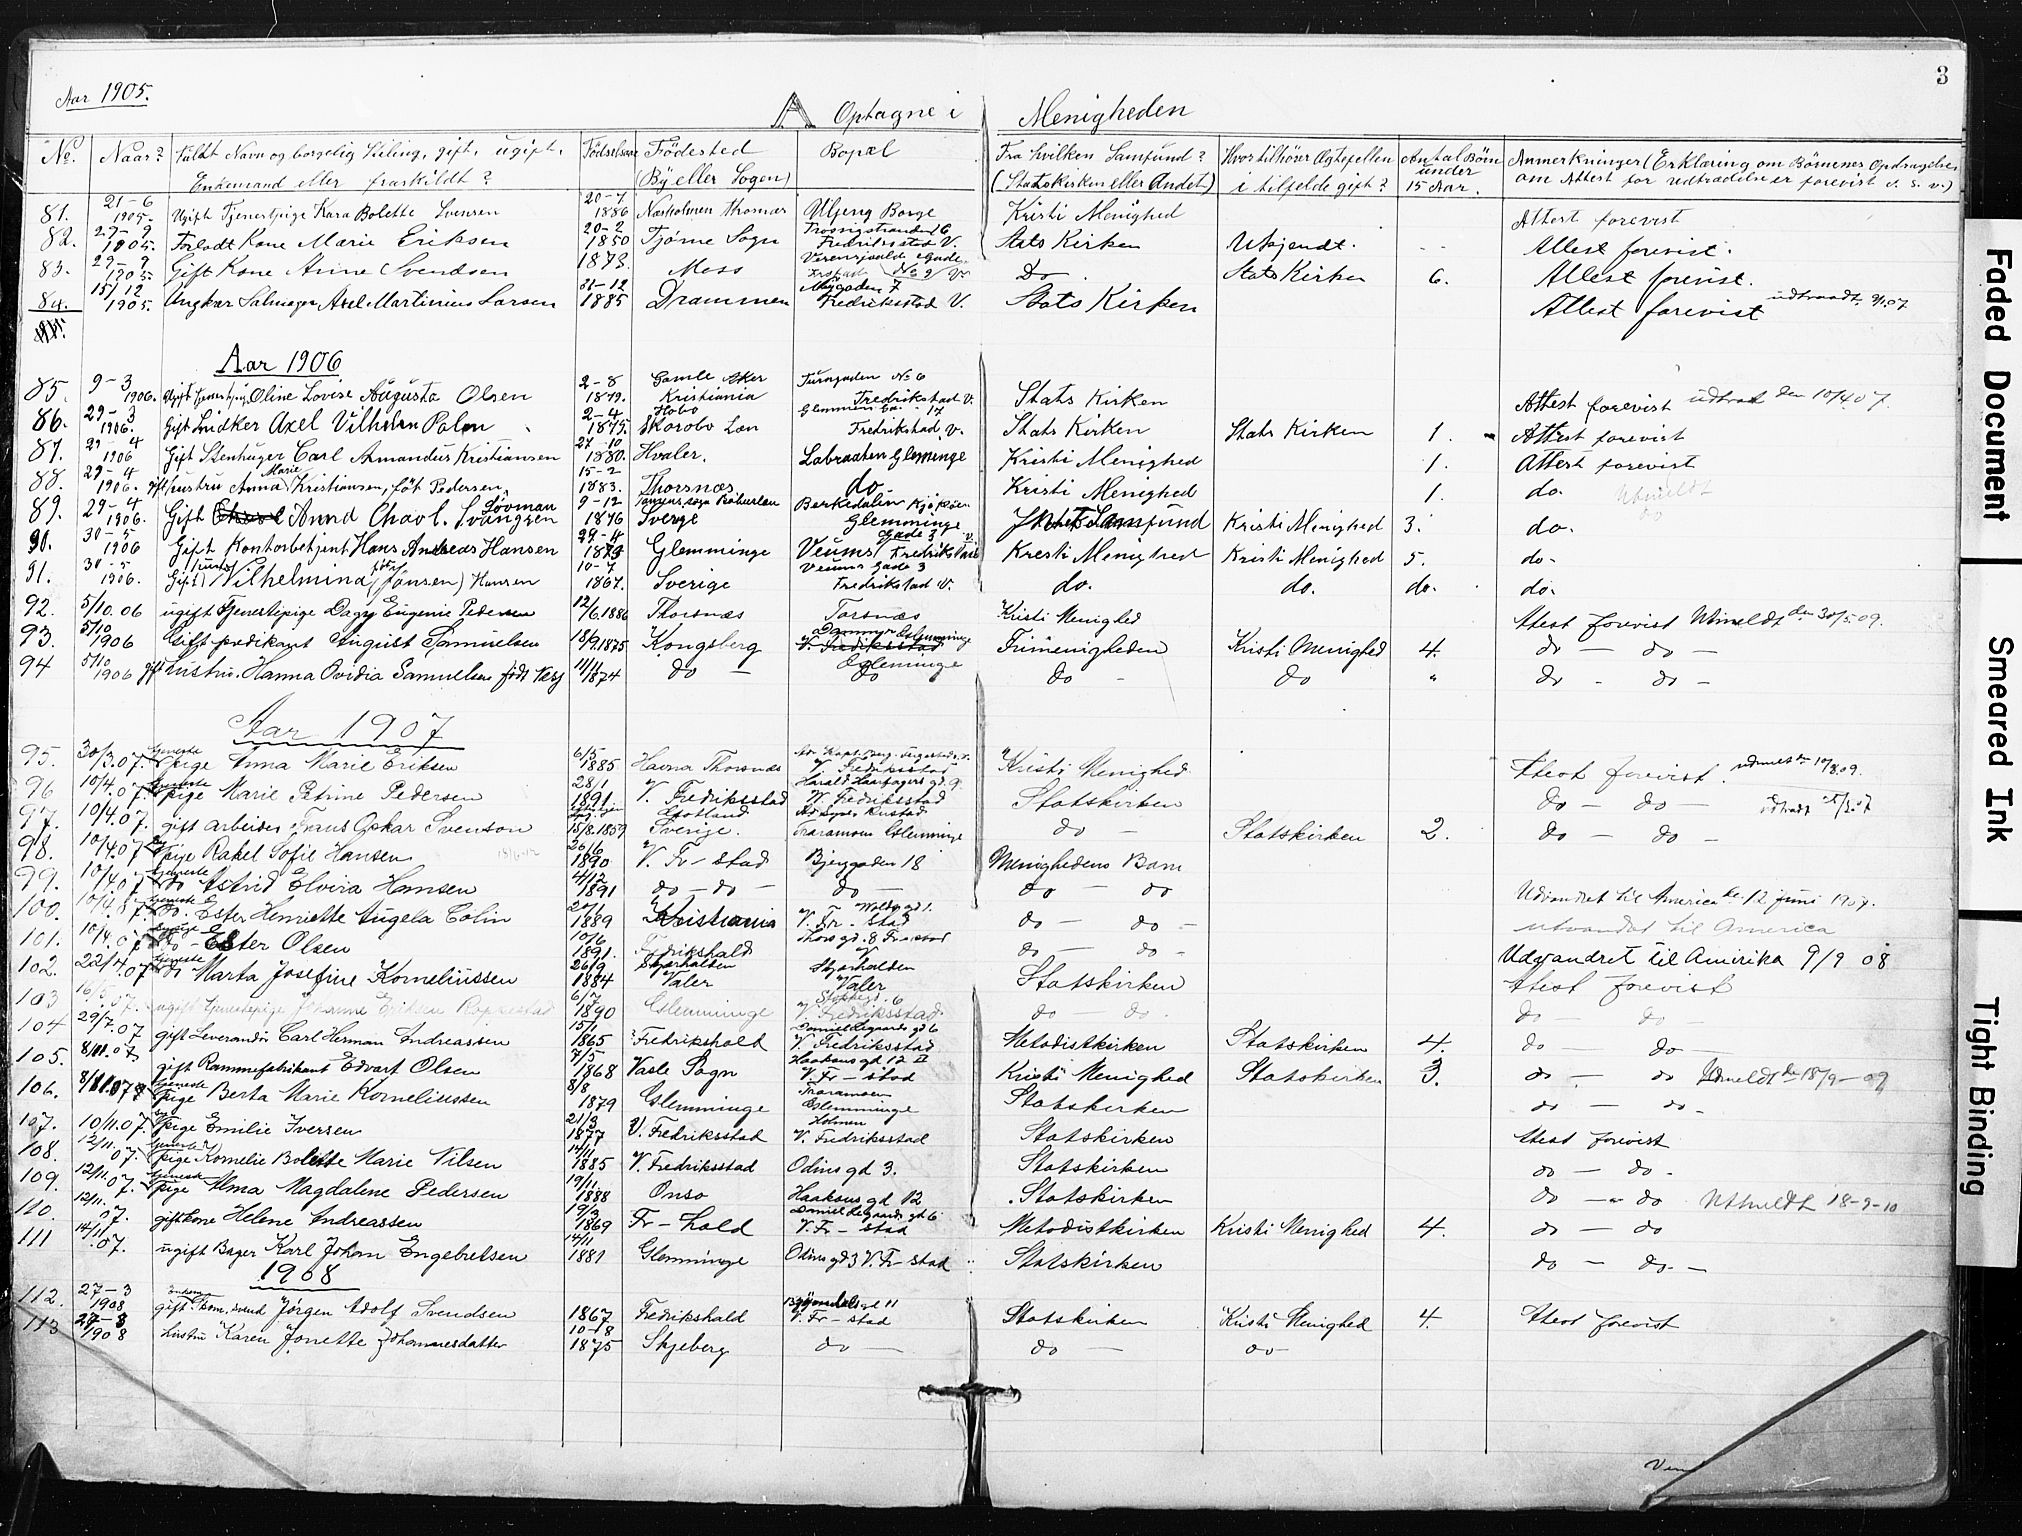 3
Aar 1905.
A Optagne i Menigheden
No. Naar? Fuldt Navn og borgelig Stilling, gift, ugift, Enkemand eller fraskildt? Födselsaar Födested (By eller Sogen) Bopæl Fra hvilken Samfund? (Statskirken eller Andet) Hvor tilhörer Ægtefellen i tilfelde gift? Antal Börn under 15 Aar. Anmerkninger (Erklæring om Börnenes Opdragelse, om Attest for udtrædelse er forevist o. s. v.)
81. 21-6 1905. Ugift Tjenestpige Kara Bolette Svensen 20-7 1886 Næsholmen Thorsnæs Ulfeng Borge Kristi Menighed Attest forevist
82. 29-9 1905. Forladt Kone Marie Eriksen 20-2 1850 Tjöme Sogn Trosvigstranden 6 Fredriksstad V. Stats Kirken Ukjendt. Attest forevist.
83. 29-9 1905. Gift Kone Anne Svendsen 1873. Moss No 2 V. Do Stats Kirken 6. Attest forevist.
84. 15/12 1905. Ungkar Salmager Axel Martinius Larsen 31-12 1885 Drammen Nygaden 7 Fredriksstad V. Stats Kirken Attest forevist udtraadt 9/1.07
Aar 1906
85. 9-3 1906. Ugift Tjenestpig Oline Lovise Augusta Olsen 2-8 1879. Gamle Aker Kristiania Turngaden No 6 Fredrikstad V. Stats Kirken Attest forevist udtraadt den 10/4.07.
86. 29-3 1906. Gift Snidker Axel Vilhelm Palm 2-4 1875. Hobo Skarobo Læn Glemmen Ga. 17 Fredrikstad V. Stats Kirken Stats Kirken 1. Attest forevist
87. 29-4 1906 Gift Stenhuger Carl Amandus Kristiansen 27-10 1880. Hvaler. Labraaten Glemminge Kristi Menighed 1. Attest forevist
88. 29-4 1906. gift hustru Anna Marie Kristiansen, föt Pedersen. 15-2 1883. Thorsnæs do. Kristi Menighed 1. do. Utmeldt
89. 29-4 1906. Gift Annd Charl. Svanggren Lövman 9-12 1876 Tanums sogn Bohuslen Sverge Barkedalen Kjököen Glemminge Samfund Kristi Menighed 3. do.
90. 30-5 1906 Gift Kontorbetjent Hans Andreas Hansen 29-4 1873 Glemminge Veums Gade 3 Fredrikstad V. Kresti Menighed Kristi Menighed 5. do.
91. 30-5 1906. Gift hustru Vilhelmina (född Jansen) Hansen 10-7 1867. Sverige Veums Gade 3 Fredrikstad V. do. do. do. do.
92. 5/10.06 ugift Tjenestepige Dagny Eugenie Pedersen 12/6.1886 Thorsnæs Torsnæs Kristi Menighed Attest forevist Utmeldt den 30/5.09.
93. 5/10 1906 Gift predikant August Samuelsen 18/9.1875 Kongsberg V. Fredriksstad Glemminge Frimenigheden Kristi Menighed 4. do — do —
94 5/10 1906 gift Hustru. Hanna Ovidia Samuelsen födt Næss 11/1 1874 do — Glemminge do do - do " do - do -
Aar 1907
95. 30/3.07. tjeneste pige Anna Marie Eriksen 6/5 1885 Havna Thorsnæs V. Fredriksstad Kristi Menighed Attest forevist. udmelt 10/8.09.
96 10/4.07. tjeneste pige Marie Petrine Pedersen 28/1 1891. V. Fredriksstad Harald Haarfagers gd 9. V. Fredriksstad Statskirken do — do — udtraadt 15/3.07
97. 10/4.07. gift arbeider Frans Oskar Svenson 15/8.1859 Gotland Sverige. Traramoen Glemminge do — Statskirken 2. do — do
98. 10/4.07 pige Rakel Sofie Hansen 26/6 1890 V. Fr- stad Bjerggaden 18 Menighedens Barn
99. 10/4.07 tjeneste do Astrid Elvira Hansen 4/12 1891 do - do - do - do — do Udvandret til America de. 12 juni 1907.
100. 10/4.07. tjeneste do. Ester Henriette Angela Colin 20/1 1889 Kristiania Voldgd 1. V. Fr. - stad do - do - utvandret til America
101. 10/4.07 do - Ester Olsen 10/6 1891. Fredrikshald Thors gd. 8 Fr. stad do - do - Udvandret til Amirika 9/9 08
102. 22/4.07 tjeneste do Marta Josefine Korneliussen 26/9 1884 Skjærhalden Valer Skjærhalden Valer Statskirken Attest forevist
103 16/5.07. ugift tjenestepige Johanne Eriksen 6/7 1890 Glemminge V. Fredriksstad do - do. do do
104 29/7.07 gift Leverandör Carl Herman Andreassen 15/1 1865 Fredrikshald Daniel Legaards gd 6 V. Fredriksstad Metodistkirken Statskirken 4. do do —
105. 8/11.07 gift Rammefabrikant Edvart Olsen 7/5 1868 Vaale Sogn Haakons gd 12 II V. Fr - stad Kristi Menighed Statskirken 3. do — do Udmeldt de 18/9-09
106. 8/11.07 tjeneste pige Berta Marie Korneliussen 8/8 1879 Glemminge Traramoen Glemminge Statskirken do — do -
107. 10/11.07. pige Emilie Iversen 21/3 1877 V. Fredriksstad Holmen V. Fredriksstad Statskirken Attest forevist
108. 12/11.07. tjeneste pige Kornelie Bolette Marie Nilsen 14/11 1885 V. Fredriksstad Odins gd 3. Statskirken do — do -
109. 12/11.07. tjeneste pige Alma Magdalene Pedersen 19/11 1888 Onsö Haakons gd 12 Statskirken do — do Utmeldt 18-9-10
110. 12/11.07. gift kone Helene Andreassen 19/3 1869 Fr - hald Daniel Legaards gd 6 V. Fr - stad Metodistkirken Kristi Menighed 4. do — do
111 14/11.07. ugift Bager Karl Johan Engebretsen 14/11 1881 Glemminge Odins gd 3 V. Fr - stad Statskirken do — do. —
1908
112. 27-3 1908 gift Jörgen Adolf Svendsen 1867 Fredrikshald gd 11 V. Fr - stad Statskirken Kristi Menighed 4. Attest forevist
113 27-3 1908 hustru Karen Jonette Johannesdatter 10-18 1875 Skjeberg do — do — do —
Faded Document
Smeared Ink
Tight Binding